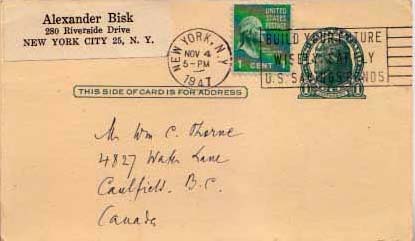 Alexander Bisk
280 Riverside Drive
NEW YORK CITY 25, N. Y.
NEW YORK, N.Y.
NOV 4
5-PM
1941
UNITED STATES POSTAGE
1 CENT
BUILD YOUR FUTURE
WISELY SAFELY
U.S. SAVINGS BONDS
THIS SIDE OF CARD IS FOR ADDRESS
Mr Wm C. Thorne
4827 Lane
Caulfield. B.C.
Canada